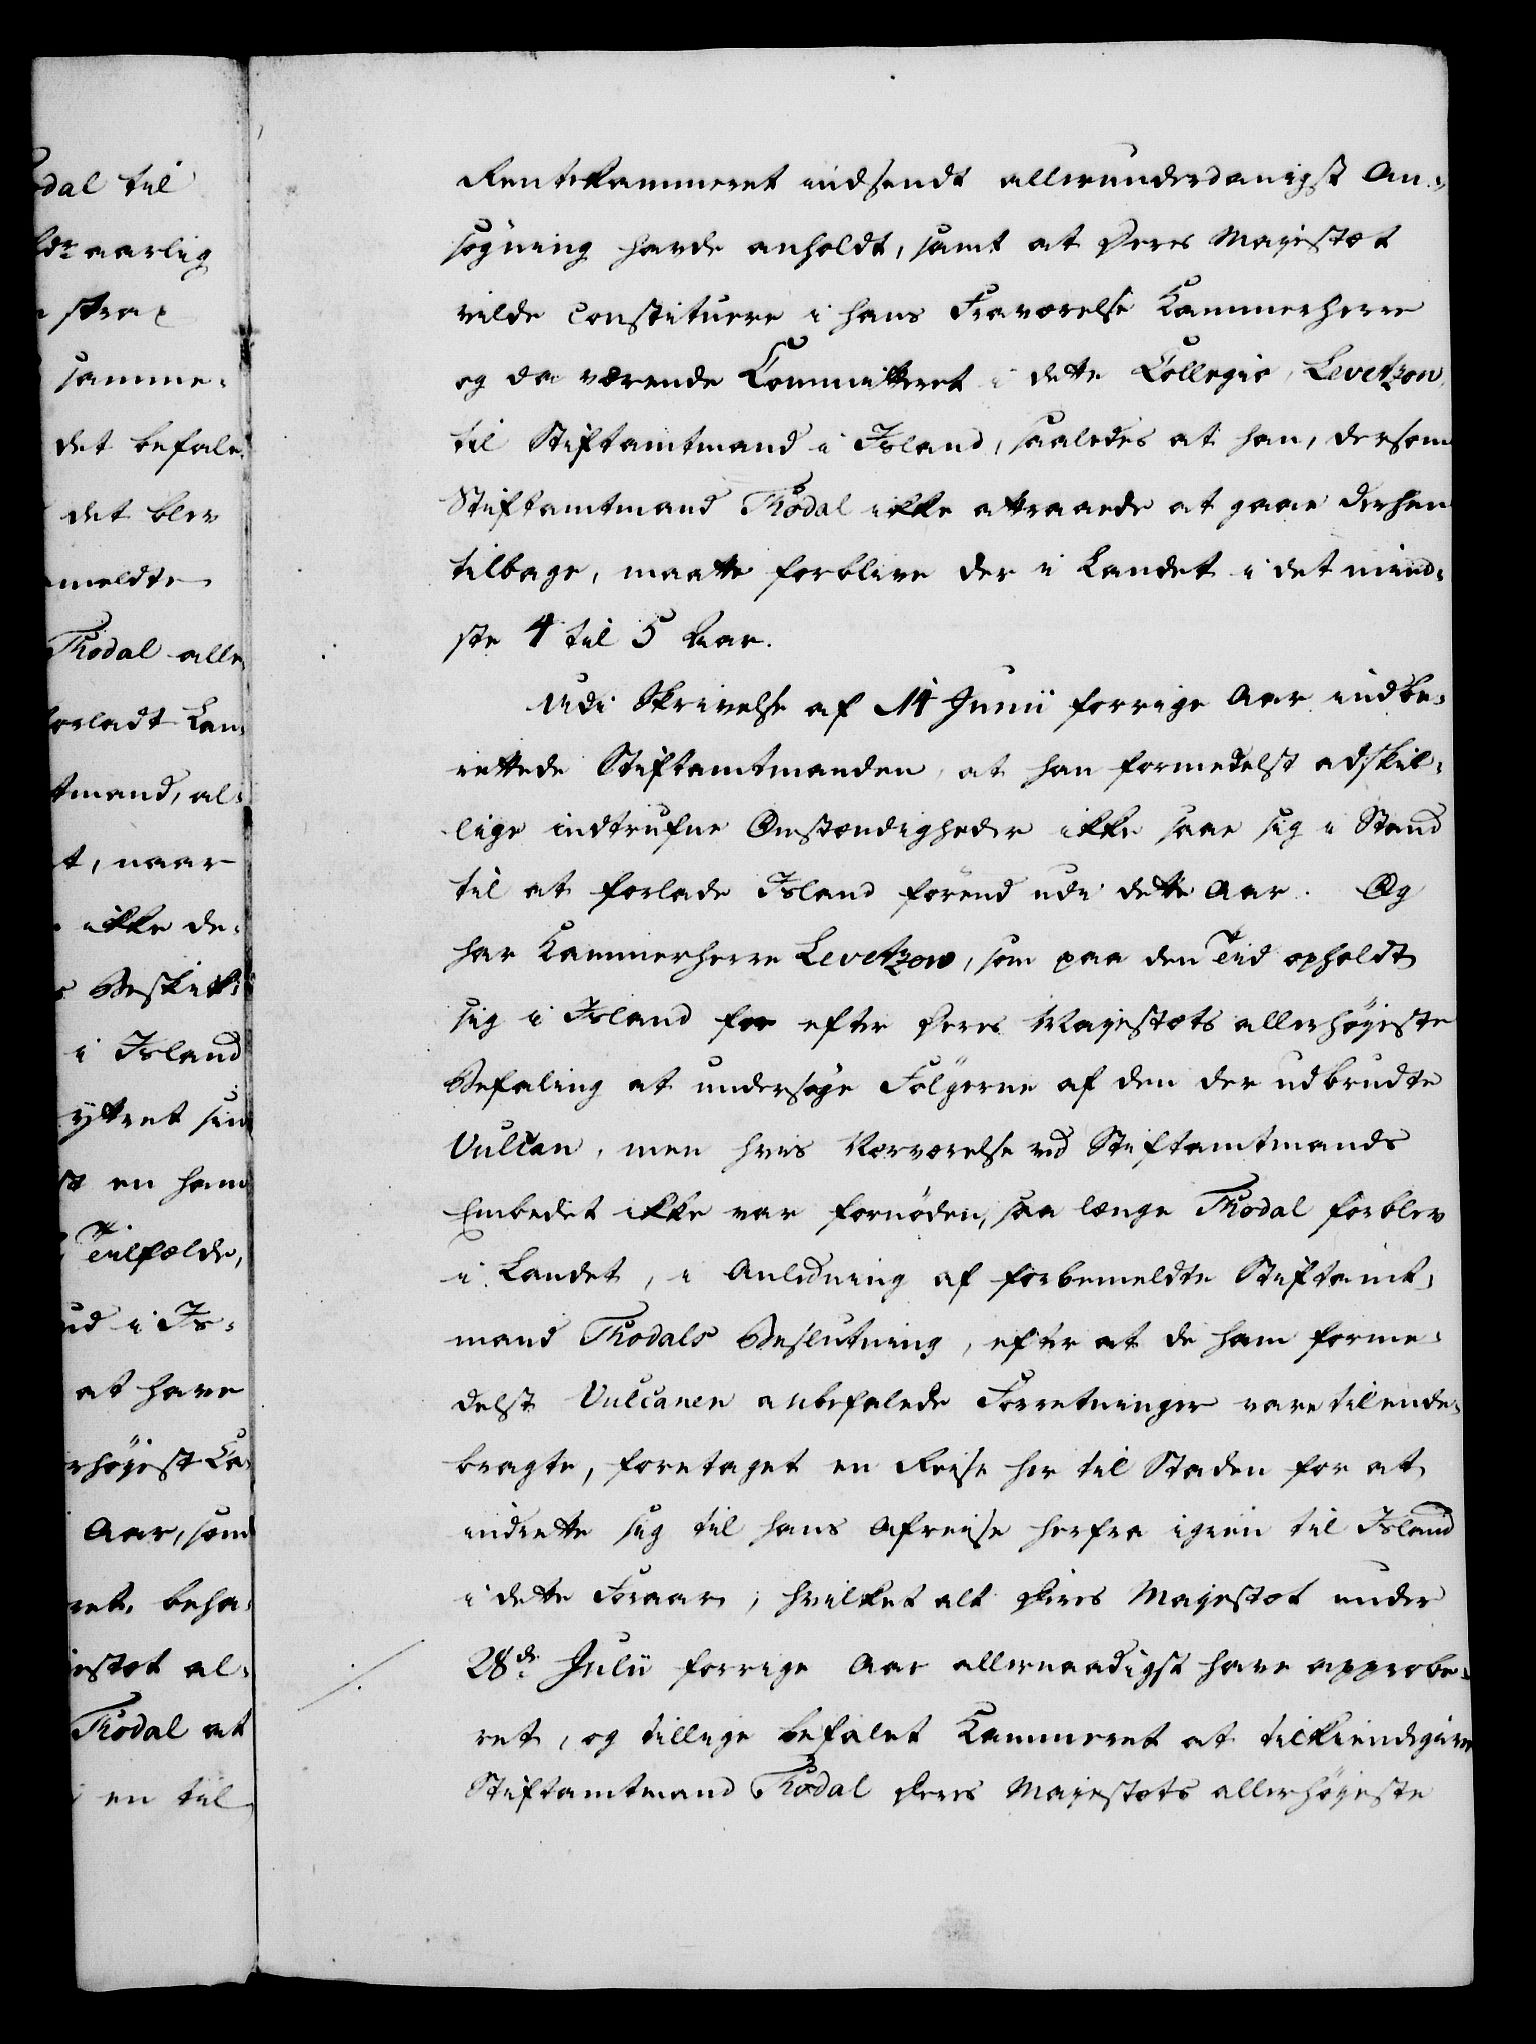 dal til
aarlig
strax
samme-
det befale
det blev
meldte
Thodal alle
forladt Lan-
tmand, al-
t, naar
ikke de-
Beskik-
i Island
yttret sin
en ham
Tilfælde,
ud i Is-
at have
rhøyest Ca-
Aar, som
ret, beha-
estæt al-
Thodal at
en til
Rentekammeret indsendt allerunderdanigst An-
søgning havde anholdt, samt at Deres Majestæt
vilde constituere i hans Fraværelse Kammerherre
og da værende Committeret i dette Collegio, Levetzow,
til Stiftamtmand i Island, saaledes at han, dersom
Stiftamtmand Thodal ikke attraaede at gaae derhen
tilbage, maatte forblive der i Landet i det mind-
ste 4 til 5 Aar.
Udi Skrivelse af 14 Junii forrige Aar indbe-
rettede Stiftamtmanden, at han formedelst adskil-
lige indtrufne Omstændigheder ikke saae sig i Stand
til at forlade Island førend udi dette Aar. Og
har Kammerherre Levetzow, som paa den Tid opholdt
sig i Island for efter Deres Majestæts allerhøyeste
Befaling at undersøge Følgerne af den der udbrudte
Vulcan, men hvis Nærværelse ved Stiftamtmands
Embedet ikke var fornøden, saa længe Thodal forblev
i Landet, i Anledning af forbemeldte Stiftamt-
mand Thodals Beslutning, efter at de ham forme-
delst Vulcanen anbefalede Forretninger vare tilende-
bragte, foretaget en Reise her til Staden for at
indrette sig til hans Afreise herfra igien til Island
i dette Foraar, hvilket alt Deres Majestæt under
28de Julii forrige Aar allernaadigst have approbe-
ret, og tillige befalet Kammeret at tilkiendegive
Stiftamtmand Thodal Deres Majestæts allerhøyeste